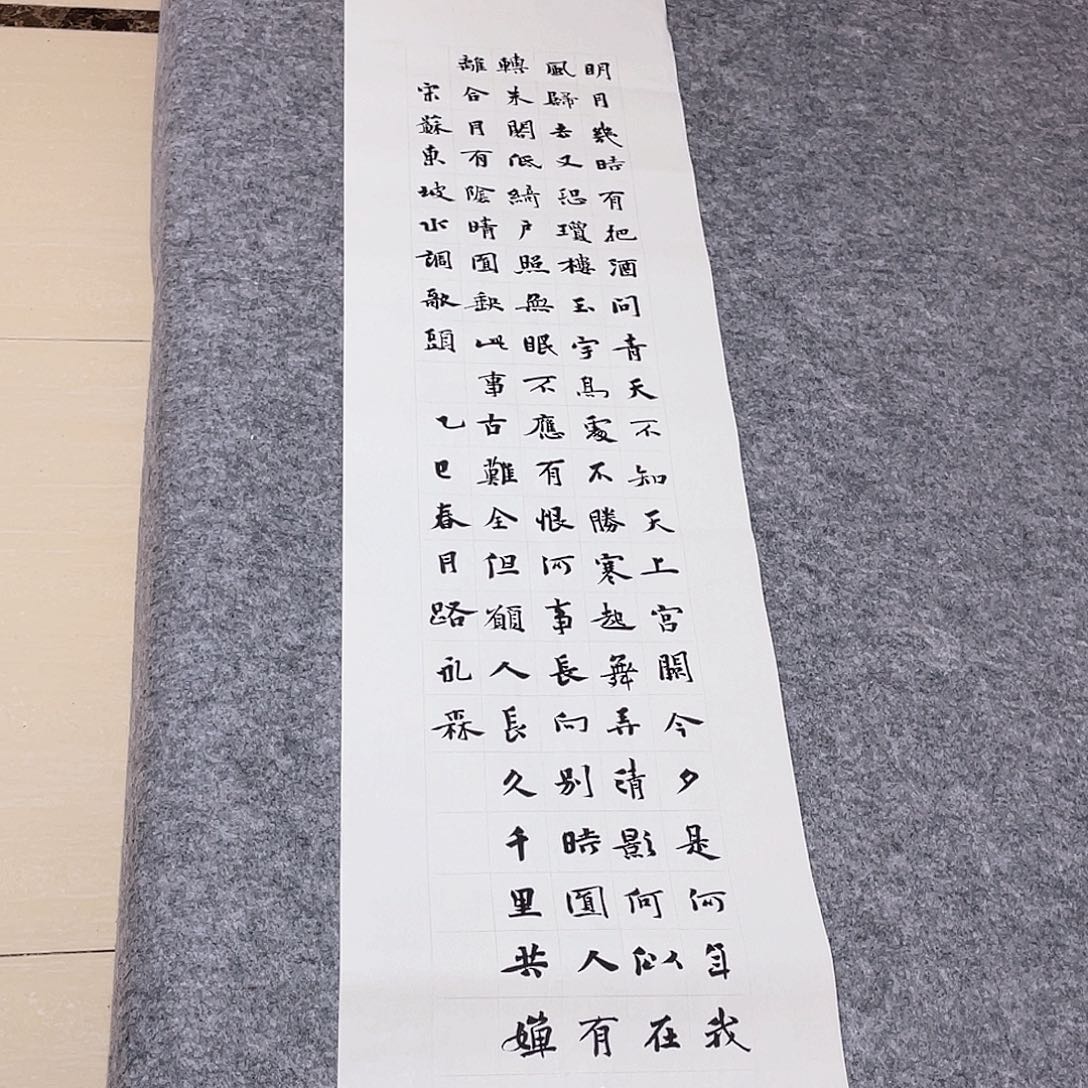 明月幾時有把酒問青天不知天上宮闕今夕是何年我
風歸去又恐瓊樓玉宇高處不勝寒起舞弄清影何似在
轉朱閣低綺戶照無眠不應有恨何事長向別時圓人有
離合月有陰晴圓缺此事古難全但願人長久千里共嬋
宋蘇東坡水調歌頭 乙巳春月路森